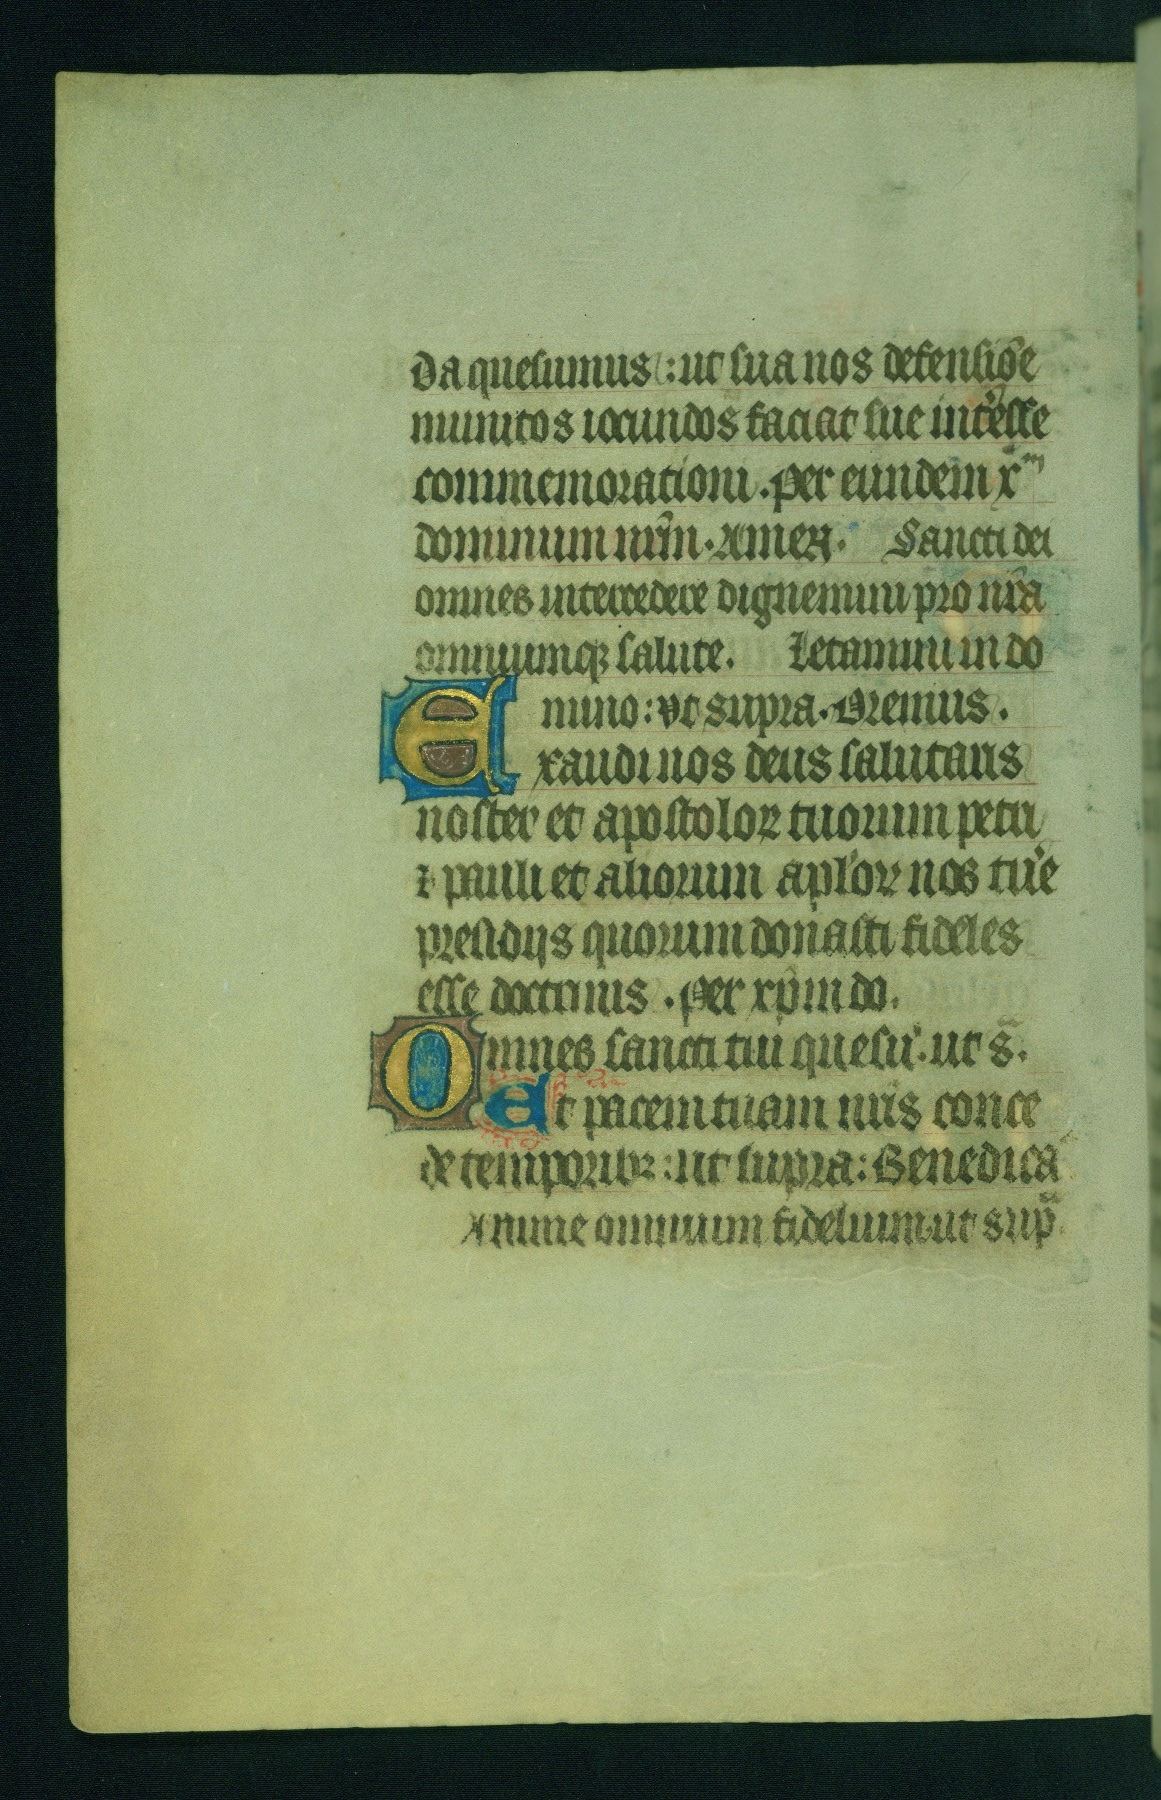 Da quesumus : ut sua nos defensiõe
munitos iocundos faciat sue int'esse
commemorationi . per eundem xᵐ
dominum nr̃m . Amen . Sancti dei
omnes intercedere dignemini pro nr̃a
omniumqꝫ salute . Letamini in do
mino : vt supra . Oremus .
Exaudi nos deus salutaris
noster et apostoloꝝ tuorum petri
⁊ pauli et aliorum apl'oꝝ nos tu'e
presidijs quorum donasti fideles
esse doctrinis . per xp̃m do .
Omnes sancti tui quesu' . ut s̃ .
Et pacem tuam nr̃is conce
de temporibꝫ : ut supra : Benedica
Anime omnium fidelium ut sup̃